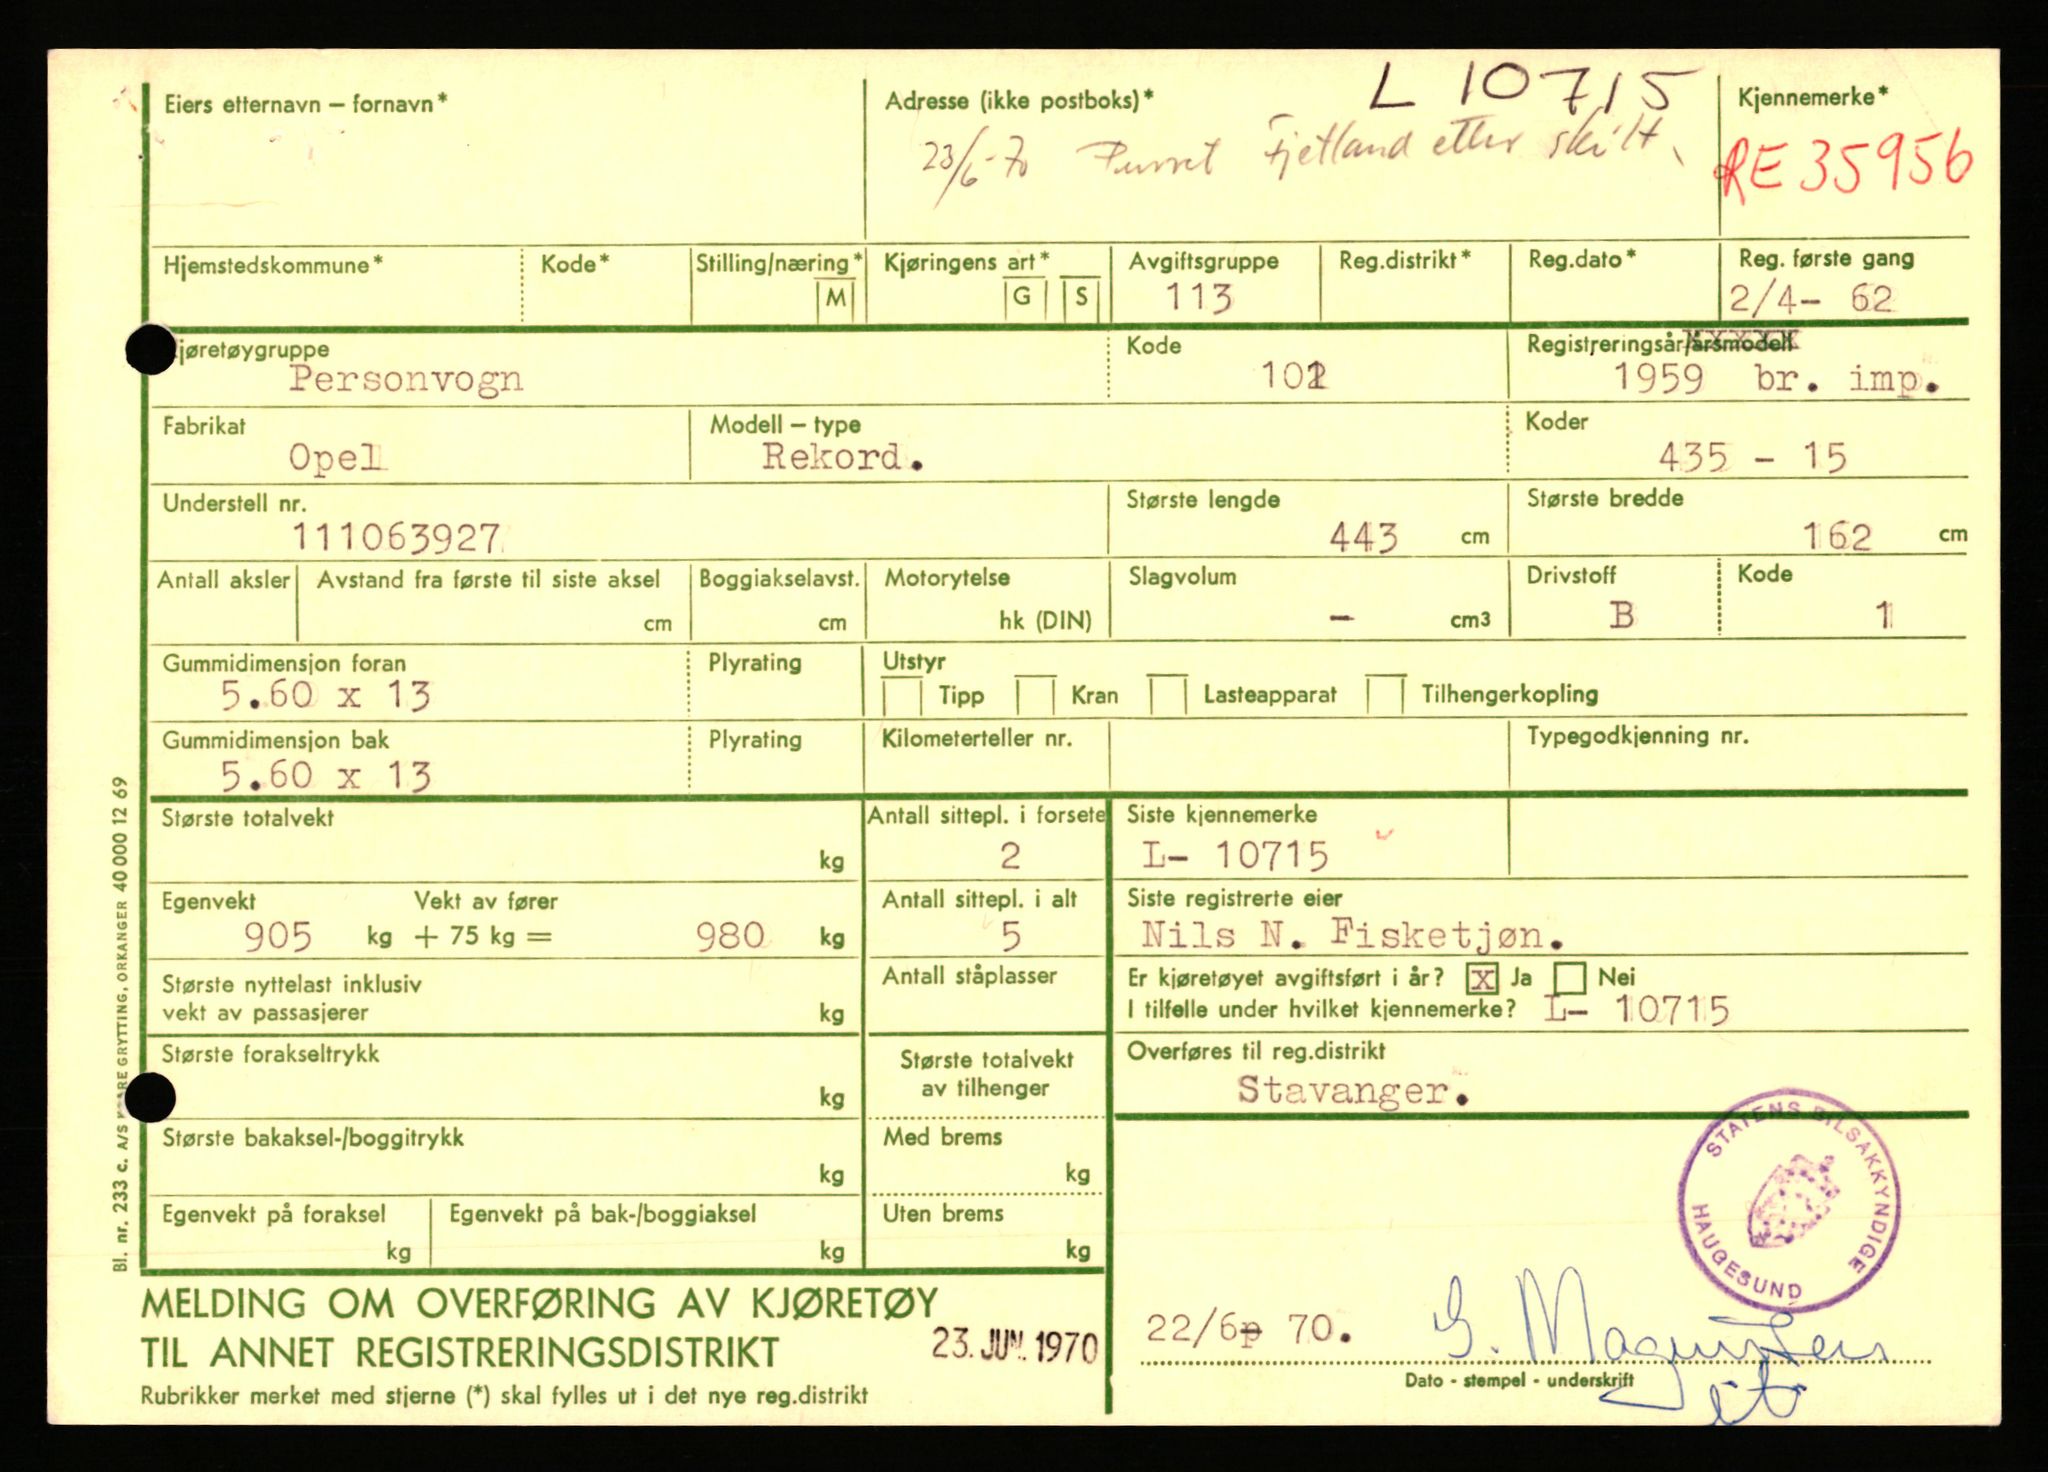 L 10715
Eiers etternavn – fornavn*
Adresse (ikke postboks)*
Kjennemerke*
23/6-70 Purret Fjetland etter skilt.
RE 35956
Hjemstedskommune*
Kode*
Stilling/næring*
M
Kjøringens art*
G S
Avgiftsgruppe
113
Reg.distrikt*
Reg.dato*
Reg. første gang
2/4- 62
Kjøretøygruppe
Personvogn
Kode
101
Registreringsår/årsmodell
1959 br. imp.
Fabrikat
Opel
Modell – type
Rekord.
Koder
435 - 15
Understell nr.
111063927
Største lengde
443 cm
Største bredde
162 cm
Antall aksler
Avstand fra første til siste aksel
cm
Boggiakselavst.
cm
Motorytelse
hk (DIN)
Slagvolum
- cm3
Drivstoff
B
Kode
1
Gummidimensjon foran
5.60 x 13
Plyrating
Utstyr
Tipp Kran Lasteapparat Tilhengerkopling
Gummidimensjon bak
5.60 x 13
Plyrating
Kilometerteller nr.
Typegodkjenning nr.
Største totalvekt
kg
Antall sittepl. i forsete
2
Siste kjennemerke
L- 10715
Egenvekt Vekt av fører
905 kg + 75 kg = 980 kg
Antall sittepl. i alt
5
Siste registrerte eier
Nils N. Fisketjøn.
Største nyttelast inklusiv
vekt av passasjerer
kg
Antall ståplasser
Er kjøretøyet avgiftsført i år? X Ja Nei
I tilfelle under hvilket kjennemerke? L- 10715
Største forakseltrykk
kg
Største totalvekt
av tilhenger
Overføres til reg.distrikt
Stavanger.
Største bakaksel-/boggitrykk
kg
Med brems
kg
Egenvekt på foraksel
kg
Egenvekt på bak-/boggiaksel
kg
Uten brems
kg
STATENS BILSAKKYNDIGE
HAUGESUND
MELDING OM OVERFØRING AV KJØRETØY
TIL ANNET REGISTRERINGSDISTRIKT
23. JUN. 1970
Rubrikker merket med stjerne (*) skal fylles ut i det nye reg.distrikt
22/6p 70. G. Magnussen
Dato - stempel - underskrift
Bl. nr. 233 c. A/S KAARE GRYTTING, ORKANGER 40 000 12 69